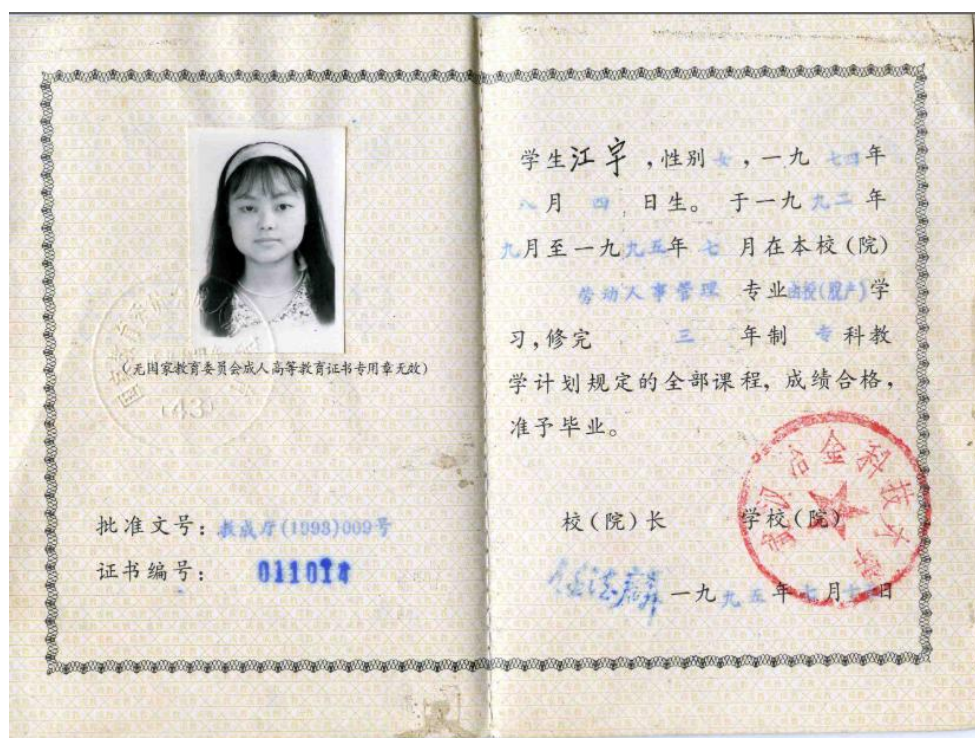 (无国家教育委员会成人高等教育证书专用章无效)
(43)
批准文号：教成厅(1993)009号
证书编号：011014
学生江宇，性别女，一九七四年
八月四日生。于一九九二年
九月至一九九五年七月在本校(院)
劳动人事管理 专业函授(脱产)学
习，修完 三 年制 专科教
学计划规定的全部课程，成绩合格，
准予毕业。
校(院)长 学校(院)
武汉冶金科技大学
一九九五年七月 日